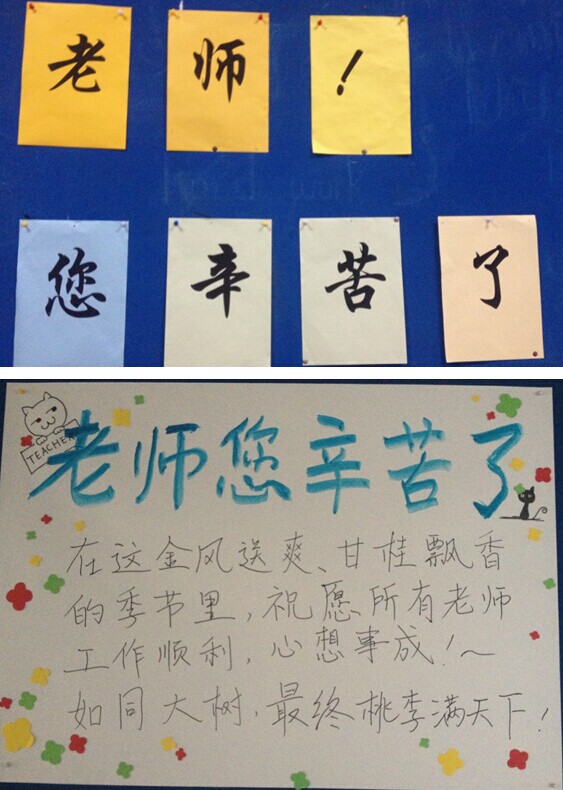 老师!
您辛苦了
TEACHER
老师您辛苦了
在这金风送爽、甘桂飘香
的季节里,祝愿所有老师
工作顺利,心想事成!~
如同大树,最终桃李满天下!